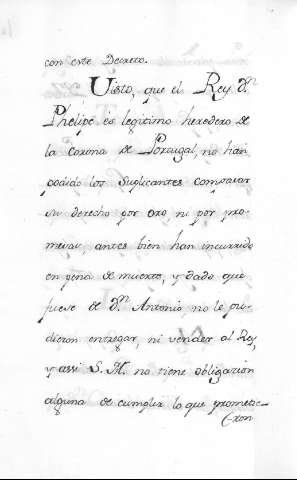 con este Decreto.
Visto, que el Rey Dⁿ
Phelipe es legitimo heredero de
la Corona de Portugal, no han
podido los Suplicantes comprar
su derecho por oro ni por pro-
mesas, antes bien han incurrido
en pena de muerte, y dado que
fuese de Dⁿ Antonio, no le pu-
dieron entregar, ni vender al Rey,
y assi S. M. no tiene obligacion
alguna de cumplir lo que prometie-
ron